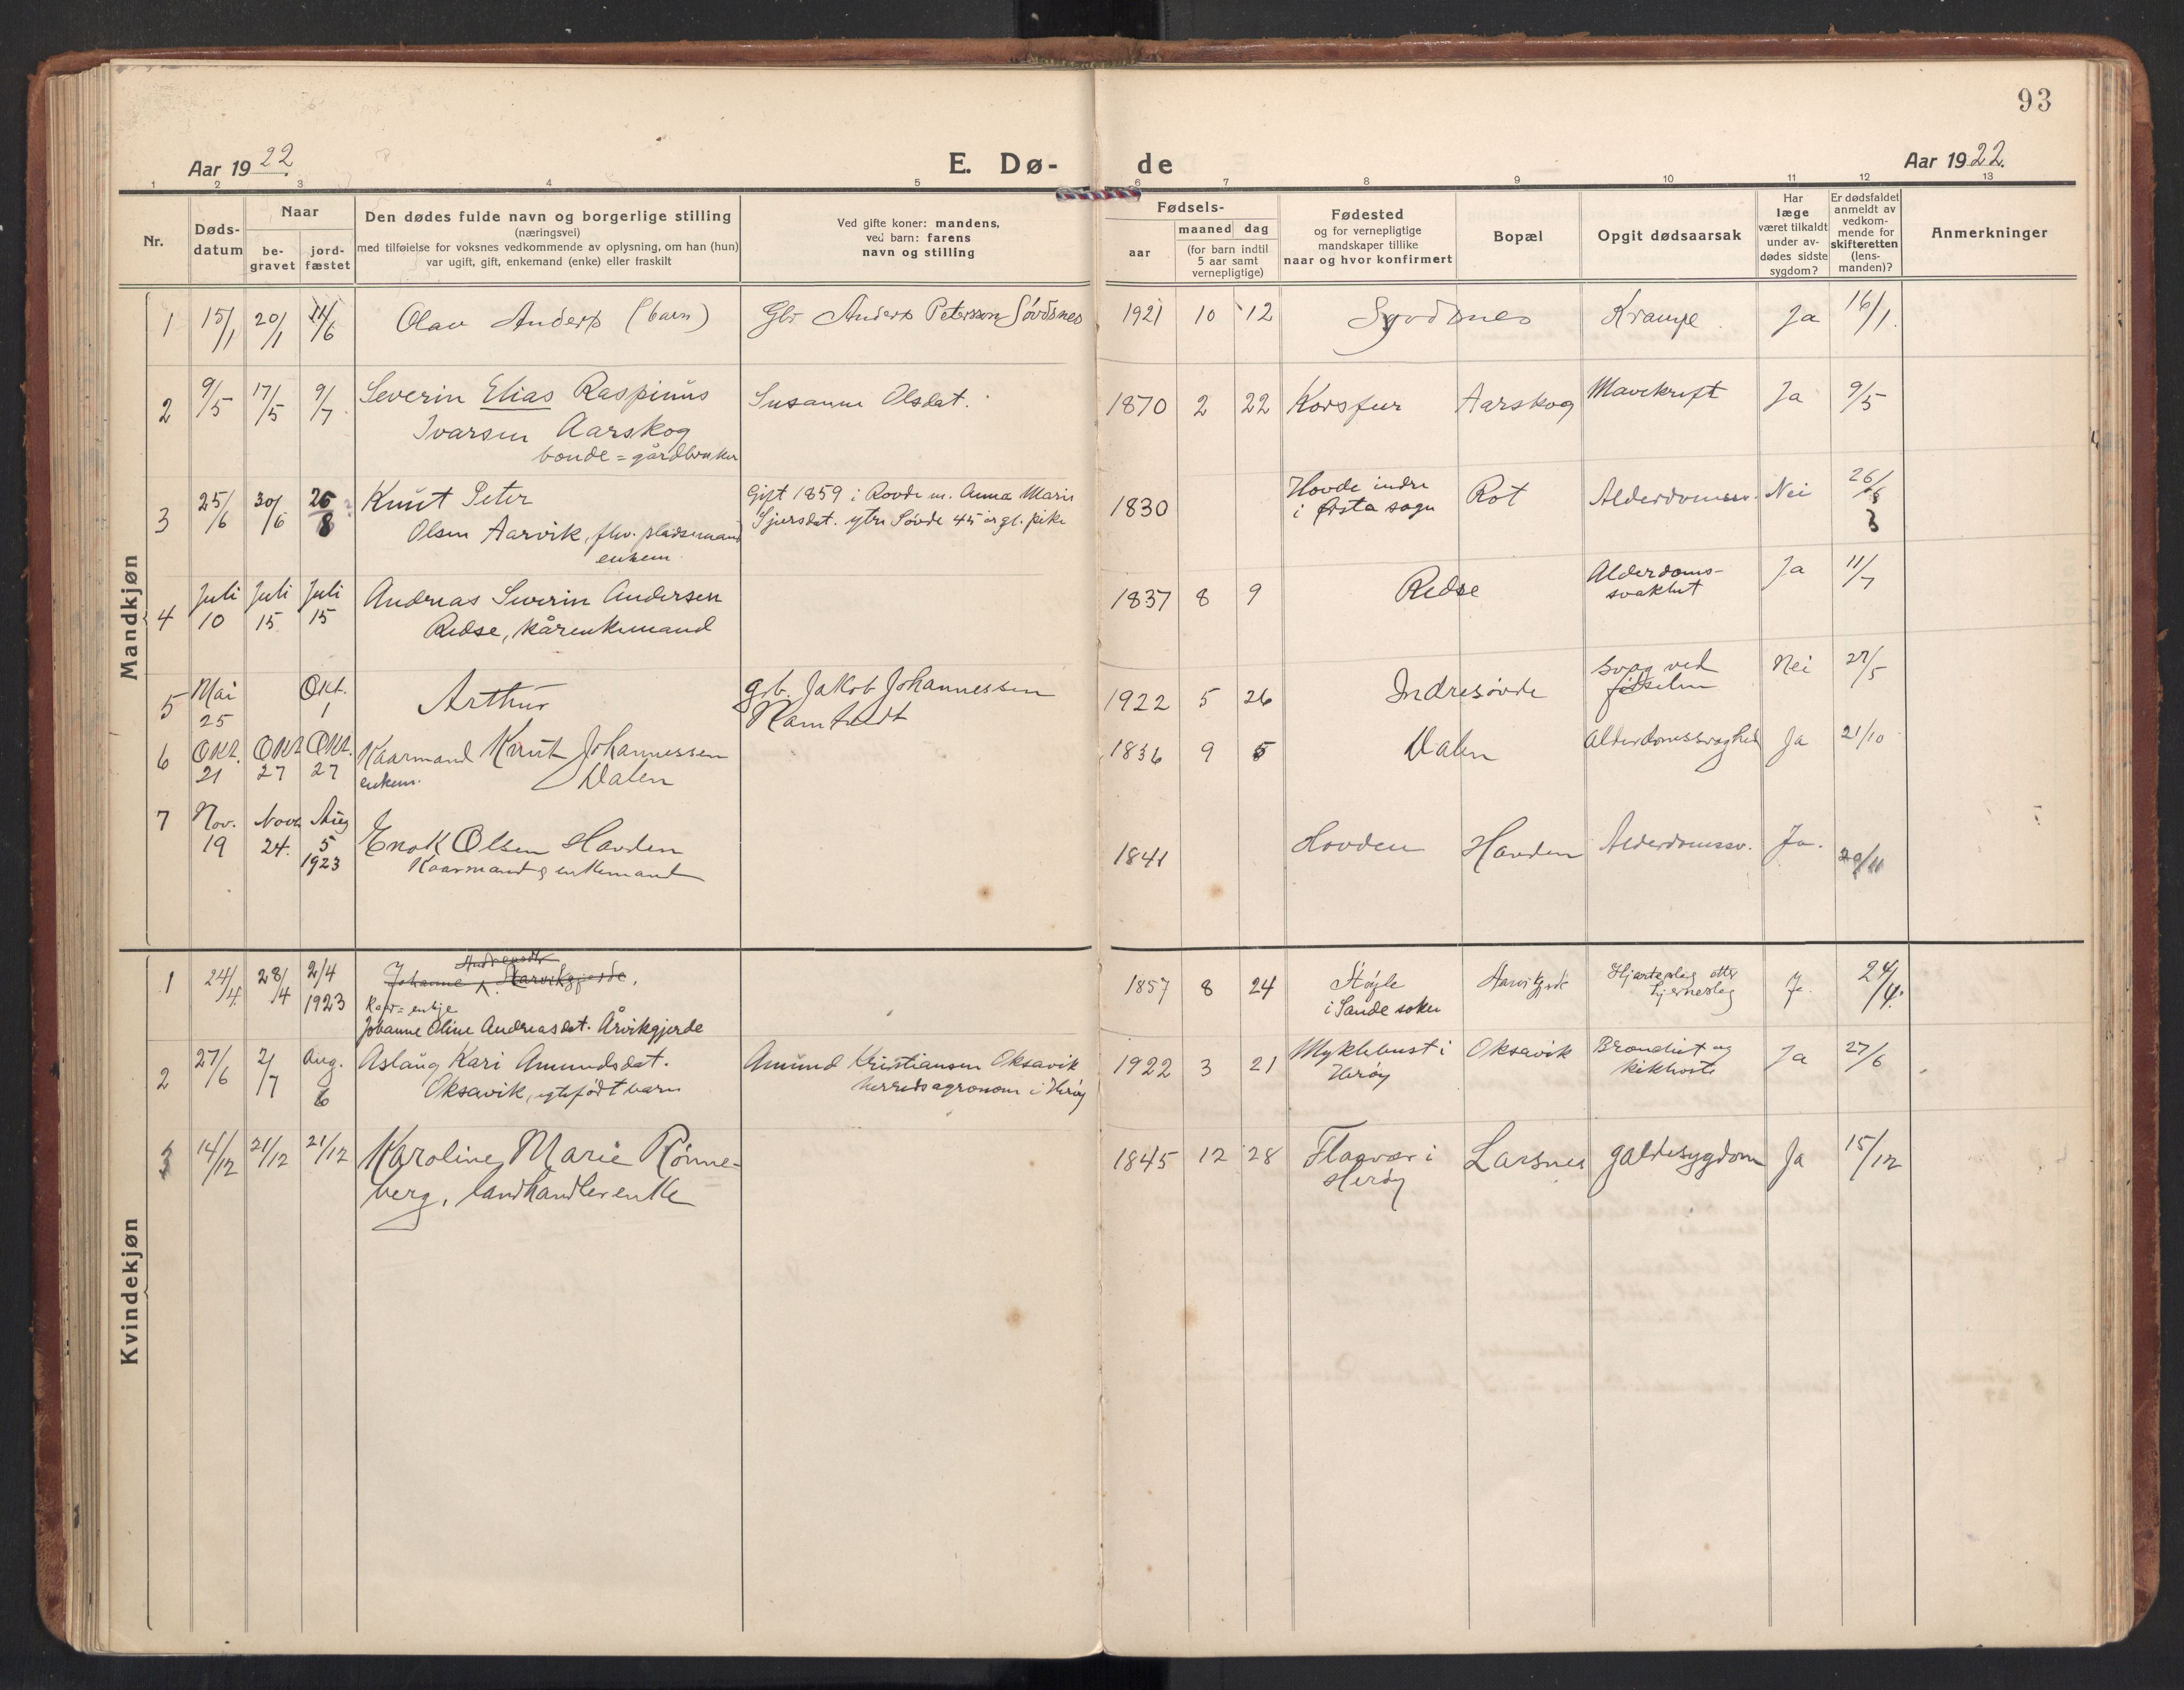 93
Aar 1922.
E. Dø-
de
Aar 1922.
1 2 3 4 5 6 7 8 9 10 11 12 13
Nr.
Døds-
datum
Naar
be-
gravet
jord-
fæstet
Den dødes fulde navn og borgerlige stilling
(næringsvei)
med tilføielse for voksnes vedkommende av oplysning, om han (hun)
var ugift, gift, enkemand (enke) eller fraskilt
Ved gifte koner: mandens,
ved barn: farens
navn og stilling
Fødsels-
aar
maaned dag
(for barn indtil
5 aar samt
vernepligtige)
Fødested
og for vernepligtige
mandskaper tillike
naar og hvor konfirmert
Bopæl
Opgit dødsaarsak
Har
læge
været tilkaldt
under av-
dødes sidste
sygdom?
Er dødsfaldet
anmeldt av
vedkom-
mende for
skifteretten
(lens-
manden)?
Anmerkninger
Mandkjøn
1 15/1 20/1 11/6 Olav Anders (barn) Gbr Anders Petersson Søvdsnes 1921 10 12 Søvdsnes Krampe Ja 16/1
2 9/5 17/5 9/7 Severin Elias Raspinus
Ivarsen Aarskog
bonde = gårdbruker
Susanne Olsdat. 1870 2 22 Korsfur Aarskog Mavekreft Ja 9/5
3 25/6 30/6 26/8 Knut Peter
Olsen Aarvik, fhv. pladsemand
enkem.
Gift 1859 i Rovde m. Anna Marie
Sjursdat. ytre Søvde 45 år gl. pike
1830 Hovde indre
i Ørsta sogn
Rot Alderdomssv. Nei 26/8
4 Juli 10 Juli 15 Juli 15 Andreas Severin Andersen
Redse, kårenkemand
1837 8 9 Redse Alderdoms-
svakhet
Ja 11/7
5 Mai 25 Okt. 1 Arthur grb. Jakob Johannessen
Ramstadt
1922 5 26 Indresøvde svag ved
fødselen
Nei 27/5
6 Okt. 21 Okt 27 Okt. 27 Kaarmand Knut Johannessen
enkem. Valen
1836 9 5 Valen Alderdomssvaghed Ja 21/10
7 Nov. 19 Novb 24. Aug 5 1923 Enok Olsen Hovden
Kaarmand og enkemand
1841 Hovden Hovden Alderdomssv. Ja. 20/11
Kvindekjøn
1 24/4. 28/4 2/4 1923 Johanne Andreasdtr Aarvikgjerde,
Kaar = enkje
Johanne Oline Andreasdat. Årvikgjerde
1857 8 24 Støyle
i Sande sokn
Aarvikgjerde Hjarteslag etter
hjerneslag
J. 24/4.
2 27/6 2/7 Aug. 6 Aslaug Kari Amundsdat.
Oksavik, egtefødt barn
Amund Kristiansen Oksavik
herredsagronom i Herøy
1922 3 21 Myklebust i
Herøy
Oksavik Bronchit og
kikhoste
Ja 27/6
3 14/12 21/12 21/12 Karoline Marie Rønne-
berg, landhandlerenke
1845 12 28 Flaavær i
Herøy
Larsnes galdesygdom Ja 15/12